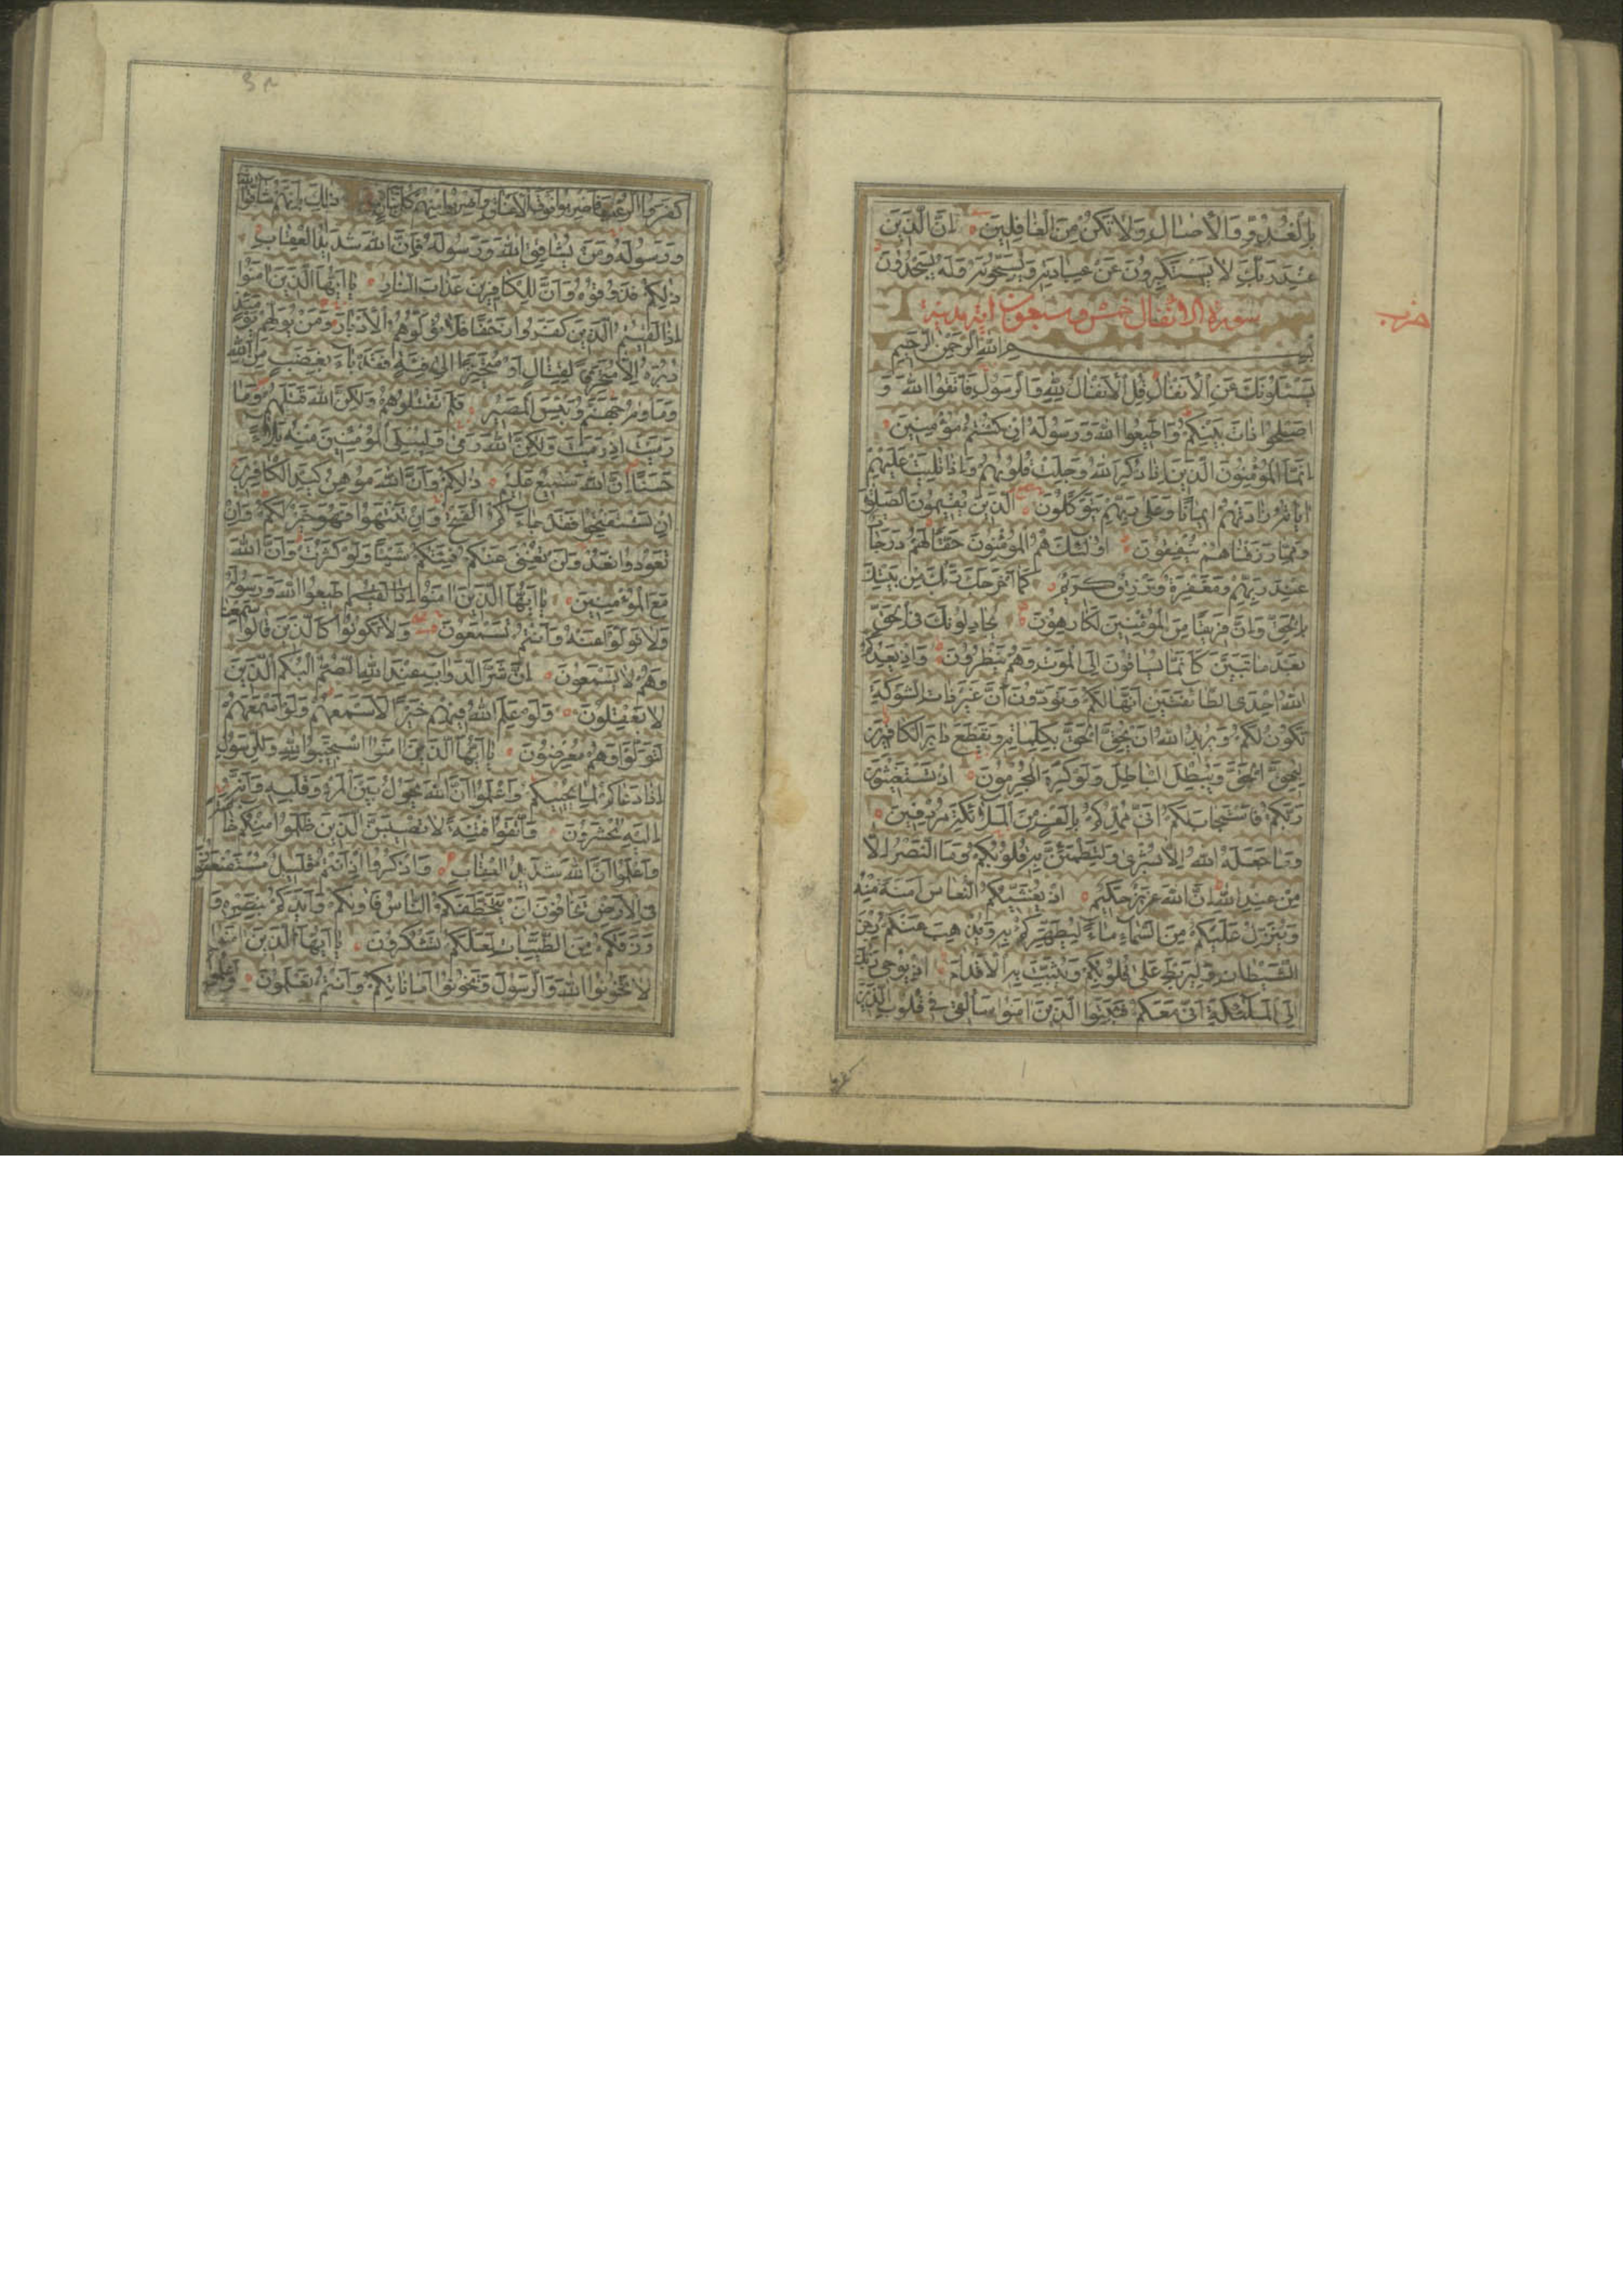 بِالْغُدُوِّ وَالْاٰصَالِ وَلَا تَكُنْ مِنَ الْغَافِلِينَ اِنَّ الَّذِينَ
عِنْدَ رَبِّكَ لَا يَسْتَكْبِرُونَ عَنْ عِبَادَتِهِ وَيُسَبِّحُونَهُ وَلَهُ يَسْجُدُونَ
سورة الانفال خمس وسبعون اية مدنية
حزب
بِسْمِ اللّٰهِ الرَّحْمٰنِ الرَّحِيمِ
يَسْئَلُونَكَ عَنِ الْاَنْفَالِ قُلِ الْاَنْفَالُ لِلّٰهِ وَالرَّسُولِ فَاتَّقُوا اللّٰهَ وَ
اَصْلِحُوا ذَاتَ بَيْنِكُمْ وَاَطِيعُوا اللّٰهَ وَرَسُولَهُ اِنْ كُنْتُمْ مُؤْمِنِينَ
اِنَّمَا الْمُؤْمِنُونَ الَّذِينَ اِذَا ذُكِرَ اللّٰهُ وَجِلَتْ قُلُوبُهُمْ وَاِذَا تُلِيَتْ عَلَيْهِمْ
اٰيَاتُهُ زَادَتْهُمْ اِيمَانًا وَعَلٰى رَبِّهِمْ يَتَوَكَّلُونَ اَلَّذِينَ يُقِيمُونَ الصَّلٰوةَ
وَمِمَّا رَزَقْنَاهُمْ يُنْفِقُونَ اُولٰئِكَ هُمُ الْمُؤْمِنُونَ حَقًّا لَهُمْ دَرَجَاتٌ
عِنْدَ رَبِّهِمْ وَمَغْفِرَةٌ وَرِزْقٌ كَرِيمٌ كَمَا اَخْرَجَكَ رَبُّكَ مِنْ بَيْتِكَ
بِالْحَقِّ وَاِنَّ فَرِيقًا مِنَ الْمُؤْمِنِينَ لَكَارِهُونَ يُجَادِلُونَكَ فِي الْحَقِّ
بَعْدَ مَا تَبَيَّنَ كَاَنَّمَا يُسَاقُونَ اِلَى الْمَوْتِ وَهُمْ يَنْظُرُونَ وَاِذْ يَعِدُكُمُ
اللّٰهُ اِحْدَى الطَّائِفَتَيْنِ اَنَّهَا لَكُمْ وَتَوَدُّونَ اَنَّ غَيْرَ ذَاتِ الشَّوْكَةِ
تَكُونُ لَكُمْ وَيُرِيدُ اللّٰهُ اَنْ يُحِقَّ الْحَقَّ بِكَلِمَاتِهِ وَيَقْطَعَ دَابِرَ الْكَافِرِينَ
لِيُحِقَّ الْحَقَّ وَيُبْطِلَ الْبَاطِلَ وَلَوْ كَرِهَ الْمُجْرِمُونَ اِذْ تَسْتَغِيثُونَ
رَبَّكُمْ فَاسْتَجَابَ لَكُمْ اَنِّي مُمِدُّكُمْ بِاَلْفٍ مِنَ الْمَلٰئِكَةِ مُرْدِفِينَ
وَمَا جَعَلَهُ اللّٰهُ اِلَّا بُشْرٰى وَلِتَطْمَئِنَّ بِهِ قُلُوبُكُمْ وَمَا النَّصْرُ اِلَّا
مِنْ عِنْدِ اللّٰهِ اِنَّ اللّٰهَ عَزِيزٌ حَكِيمٌ اِذْ يُغَشِّيكُمُ النُّعَاسَ اَمَنَةً مِنْهُ
وَيُنَزِّلُ عَلَيْكُمْ مِنَ السَّمَاءِ مَاءً لِيُطَهِّرَكُمْ بِهِ وَيُذْهِبَ عَنْكُمْ رِجْزَ
الشَّيْطَانِ وَلِيَرْبِطَ عَلٰى قُلُوبِكُمْ وَيُثَبِّتَ بِهِ الْاَقْدَامَ اِذْ يُوحِي رَبُّكَ
اِلَى الْمَلٰئِكَةِ اَنِّي مَعَكُمْ فَثَبِّتُوا الَّذِينَ اٰمَنُوا سَاُلْقِي فِي قُلُوبِ الَّذِينَ
كَفَرُوا الرُّعْبَ فَاضْرِبُوا فَوْقَ الْاَعْنَاقِ وَاضْرِبُوا مِنْهُمْ كُلَّ بَنَانٍ ذٰلِكَ بِاَنَّهُمْ شَاقُّوا اللّٰهَ
وَرَسُولَهُ وَمَنْ يُشَاقِقِ اللّٰهَ وَرَسُولَهُ فَاِنَّ اللّٰهَ شَدِيدُ الْعِقَابِ
ذٰلِكُمْ فَذُوقُوهُ وَاَنَّ لِلْكَافِرِينَ عَذَابَ النَّارِ يَا اَيُّهَا الَّذِينَ اٰمَنُوا
اِذَا لَقِيتُمُ الَّذِينَ كَفَرُوا زَحْفًا فَلَا تُوَلُّوهُمُ الْاَدْبَارَ وَمَنْ يُوَلِّهِمْ يَوْمَئِذٍ
دُبُرَهُ اِلَّا مُتَحَرِّفًا لِقِتَالٍ اَوْ مُتَحَيِّزًا اِلٰى فِئَةٍ فَقَدْ بَاءَ بِغَضَبٍ مِنَ اللّٰهِ
وَمَاْوٰيهُ جَهَنَّمُ وَبِئْسَ الْمَصِيرُ فَلَمْ تَقْتُلُوهُمْ وَلٰكِنَّ اللّٰهَ قَتَلَهُمْ وَمَا
رَمَيْتَ اِذْ رَمَيْتَ وَلٰكِنَّ اللّٰهَ رَمٰى وَلِيُبْلِيَ الْمُؤْمِنِينَ مِنْهُ بَلَاءً
حَسَنًا اِنَّ اللّٰهَ سَمِيعٌ عَلِيمٌ ذٰلِكُمْ وَاَنَّ اللّٰهَ مُوهِنُ كَيْدِ الْكَافِرِينَ
اِنْ تَسْتَفْتِحُوا فَقَدْ جَاءَكُمُ الْفَتْحُ وَاِنْ تَنْتَهُوا فَهُوَ خَيْرٌ لَكُمْ وَاِنْ
تَعُودُوا نَعُدْ وَلَنْ تُغْنِيَ عَنْكُمْ فِئَتُكُمْ شَيْئًا وَلَوْ كَثُرَتْ وَاَنَّ اللّٰهَ
مَعَ الْمُؤْمِنِينَ يَا اَيُّهَا الَّذِينَ اٰمَنُوا اَطِيعُوا اللّٰهَ وَرَسُولَهُ
وَلَا تَوَلَّوْا عَنْهُ وَاَنْتُمْ تَسْمَعُونَ وَلَا تَكُونُوا كَالَّذِينَ قَالُوا سَمِعْنَا
وَهُمْ لَا يَسْمَعُونَ اِنَّ شَرَّ الدَّوَابِّ عِنْدَ اللّٰهِ الصُّمُّ الْبُكْمُ الَّذِينَ
لَا يَعْقِلُونَ وَلَوْ عَلِمَ اللّٰهُ فِيهِمْ خَيْرًا لَاَسْمَعَهُمْ وَلَوْ اَسْمَعَهُمْ
لَتَوَلَّوْا وَهُمْ مُعْرِضُونَ يَا اَيُّهَا الَّذِينَ اٰمَنُوا اسْتَجِيبُوا لِلّٰهِ وَلِلرَّسُولِ
اِذَا دَعَاكُمْ لِمَا يُحْيِيكُمْ وَاعْلَمُوا اَنَّ اللّٰهَ يَحُولُ بَيْنَ الْمَرْءِ وَقَلْبِهِ وَاَنَّهُ
اِلَيْهِ تُحْشَرُونَ وَاتَّقُوا فِتْنَةً لَا تُصِيبَنَّ الَّذِينَ ظَلَمُوا مِنْكُمْ خَاصَّةً
وَاعْلَمُوا اَنَّ اللّٰهَ شَدِيدُ الْعِقَابِ وَاذْكُرُوا اِذْ اَنْتُمْ قَلِيلٌ مُسْتَضْعَفُونَ
فِي الْاَرْضِ تَخَافُونَ اَنْ يَتَخَطَّفَكُمُ النَّاسُ فَاٰوٰيكُمْ وَاَيَّدَكُمْ بِنَصْرِهِ وَ
وَرَزَقَكُمْ مِنَ الطَّيِّبَاتِ لَعَلَّكُمْ تَشْكُرُونَ يَا اَيُّهَا الَّذِينَ اٰمَنُوا
لَا تَخُونُوا اللّٰهَ وَالرَّسُولَ وَتَخُونُوا اَمَانَاتِكُمْ وَاَنْتُمْ تَعْلَمُونَ وَاعْلَمُوا